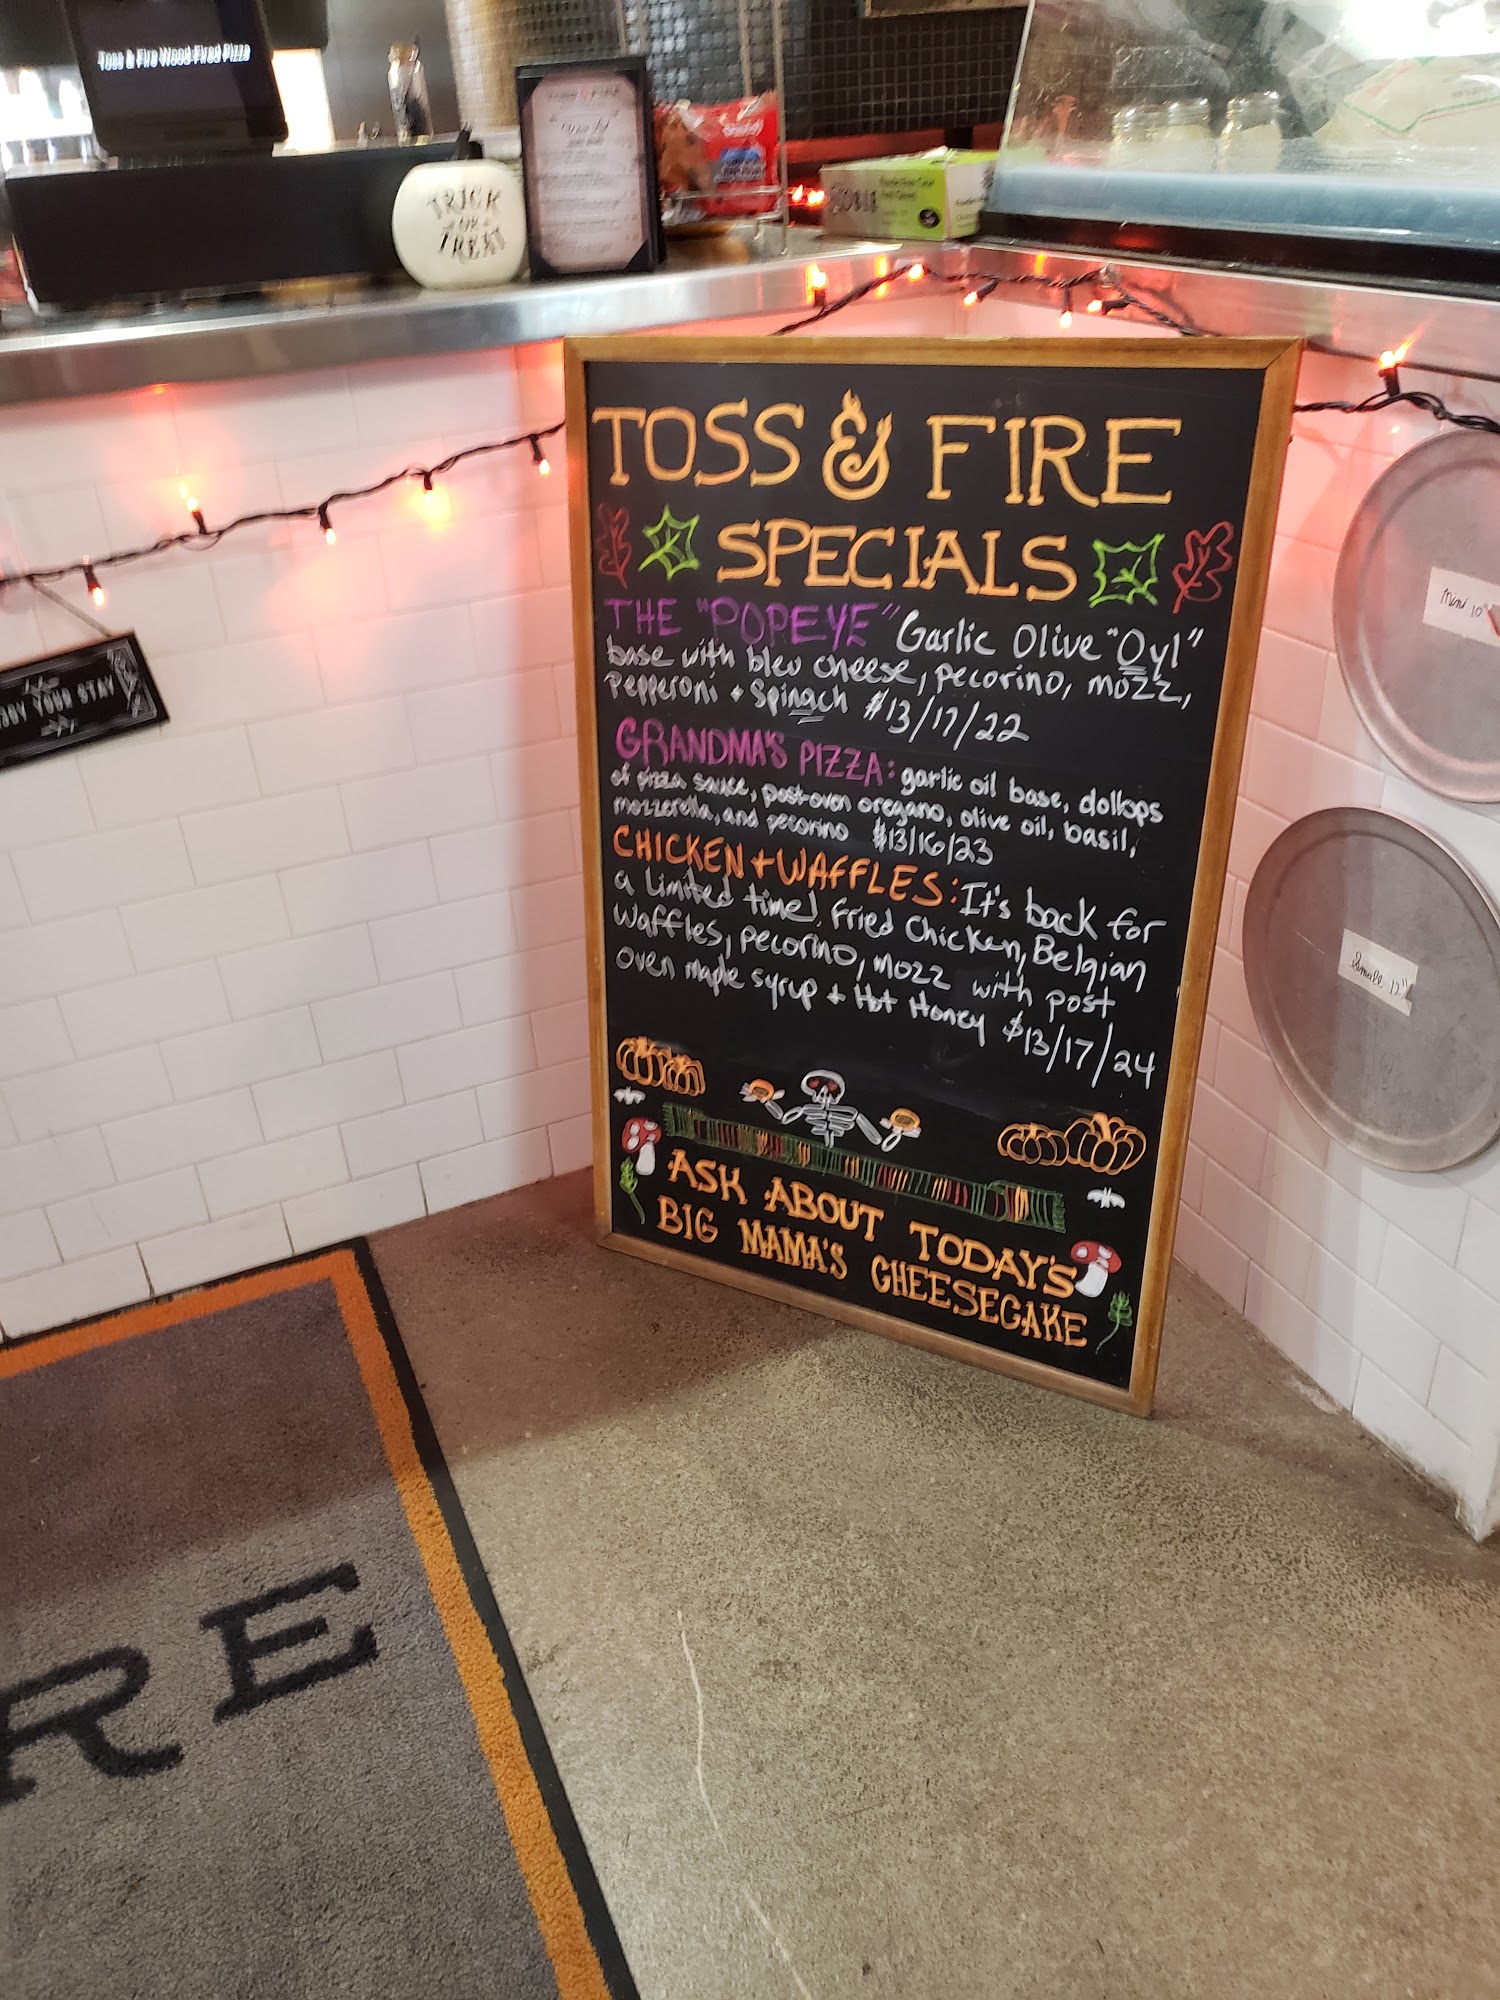 Toss & Fire Wood-Fired Pizza
TRICK
OR
TREAT
TOSS & FIRE
SPECIALS
THE "POPEYE" Garlic Olive "Oyl"
base with bleu cheese, pecorino, mozz,
Pepperoni + Spinach $13/17/22
GRANDMA'S PIZZA: garlic oil base, dollops
of pizza sauce, post-oven oregano, olive oil, basil,
mozzerella, and pecorino $13/16/23
CHICKEN + WAFFLES: It's back for
a limited time! Fried Chicken, Belgian
Waffles, pecorino, mozz with post
oven maple syrup + Hot Honey $13/17/24
ASK ABOUT TODAY'S
BIG MAMA'S CHEESECAKE
YOUR STAY
Mini 10"
Small 12"
RE